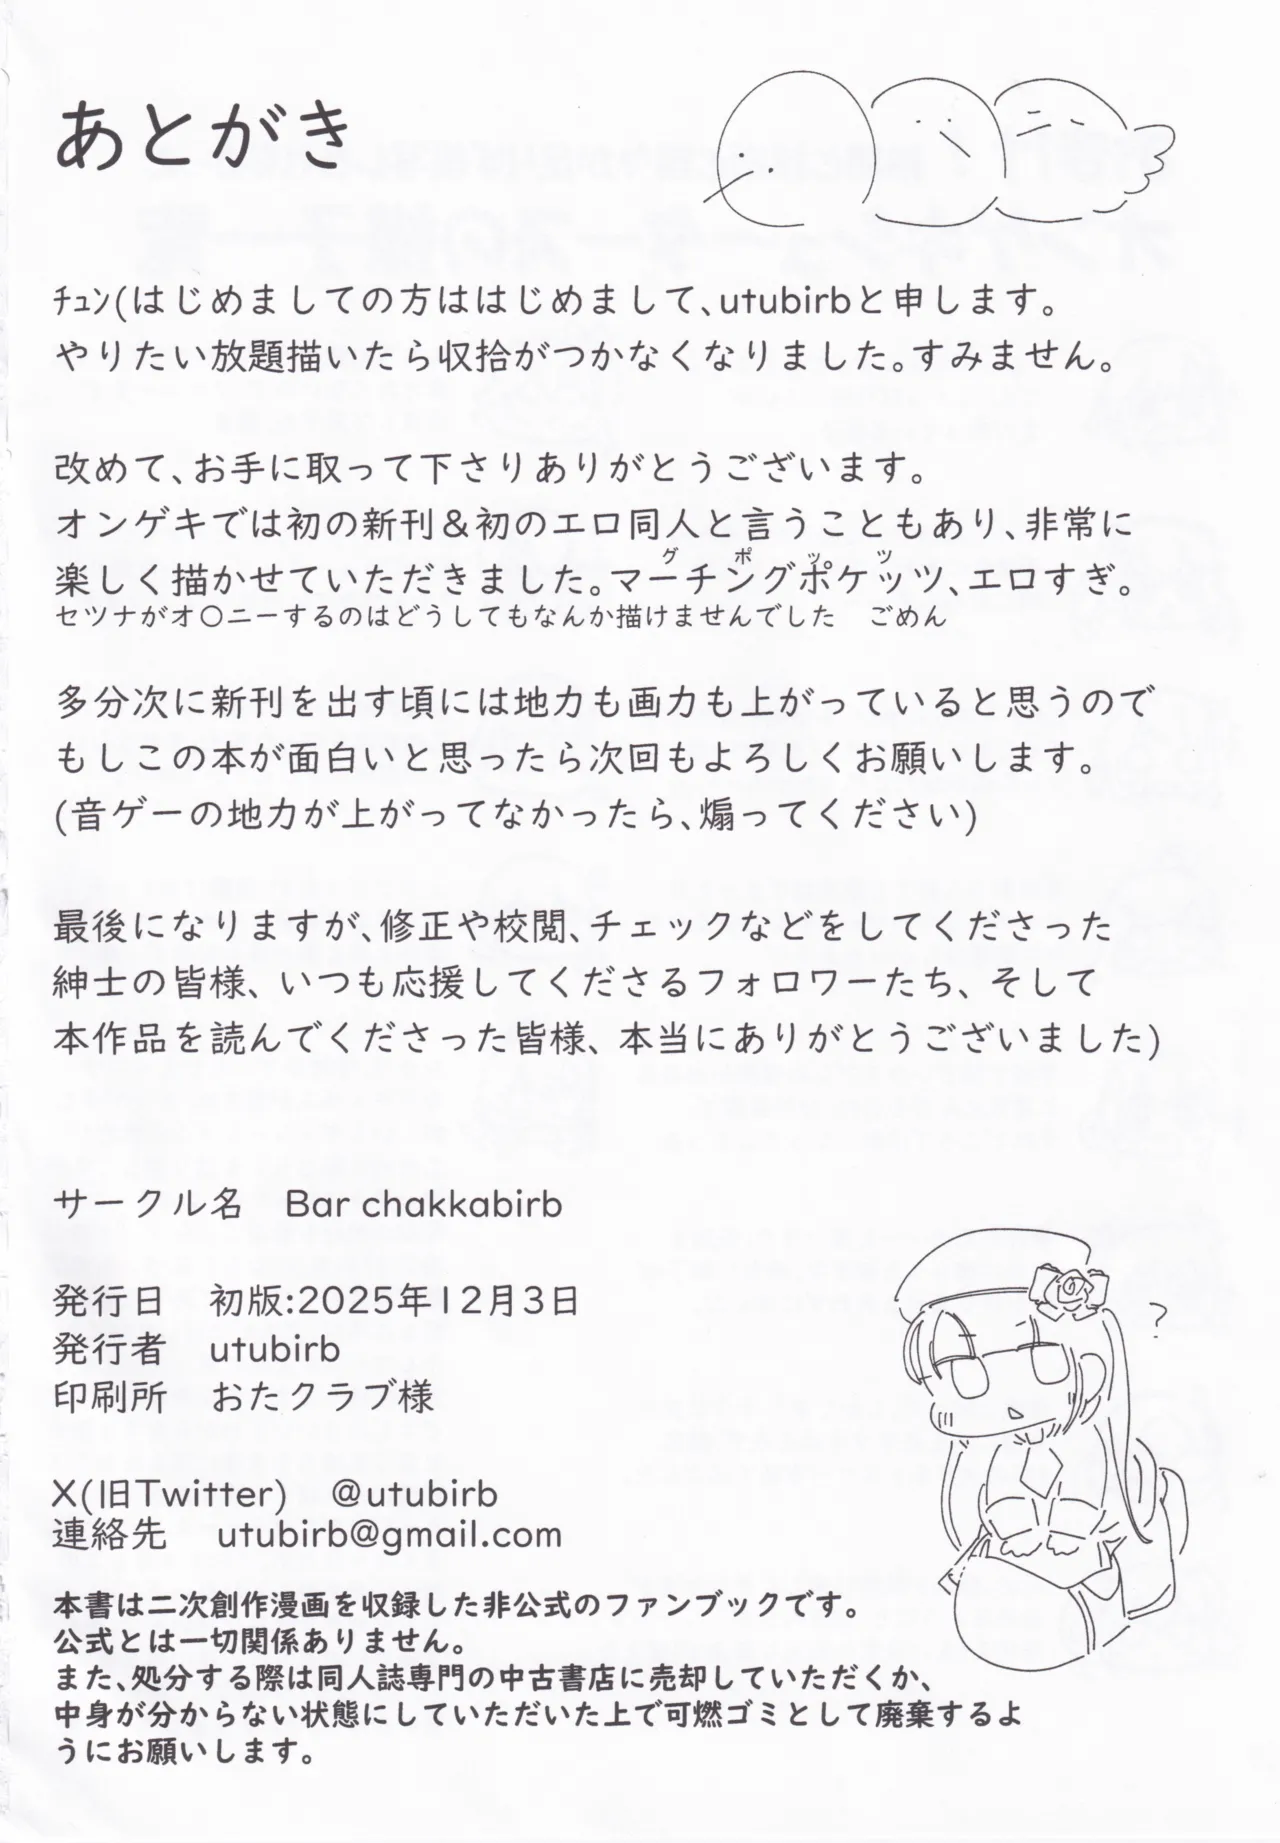 あとがき
ﾁｭﾝ(はじめましての方ははじめまして、utubirbと申します。
やりたい放題描いたら収拾がつかなくなりました。すみません。
改めて、お手に取って下さりありがとうございます。
オンゲキでは初の新刊&初のエロ同人と言うこともあり、非常に
グポッツ
楽しく描かせていただきました。マーチングポケッツ、エロすぎ。
セツナがオ〇ニーするのはどうしてもなんか描けませんでした　ごめん
多分次に新刊を出す頃には地力も画力も上がっていると思うので
もしこの本が面白いと思ったら次回もよろしくお願いします。
(音ゲーの地力が上がってなかったら、煽ってください)
最後になりますが、修正や校閲、チェックなどをしてくださった
紳士の皆様、いつも応援してくださるフォロワーたち、そして
本作品を読んでくださった皆様、本当にありがとうございました)
サークル名　Bar chakkabirb
発行日　初版:2025年12月3日
発行者　utubirb
印刷所　おたクラブ様
?
X(旧Twitter)　@utubirb
連絡先　utubirb@gmail.com
本書は二次創作漫画を収録した非公式のファンブックです。
公式とは一切関係ありません。
また、処分する際は同人誌専門の中古書店に売却していただくか、
中身が分からない状態にしていただいた上で可燃ゴミとして廃棄するよ
うにお願いします。